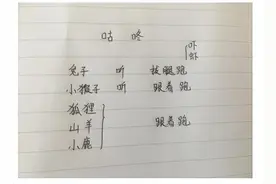 咕咚
吓
虾
兔子 听 拔腿跑
小猴子 听 跟着跑
狐狸
山羊 跟着跑
小鹿